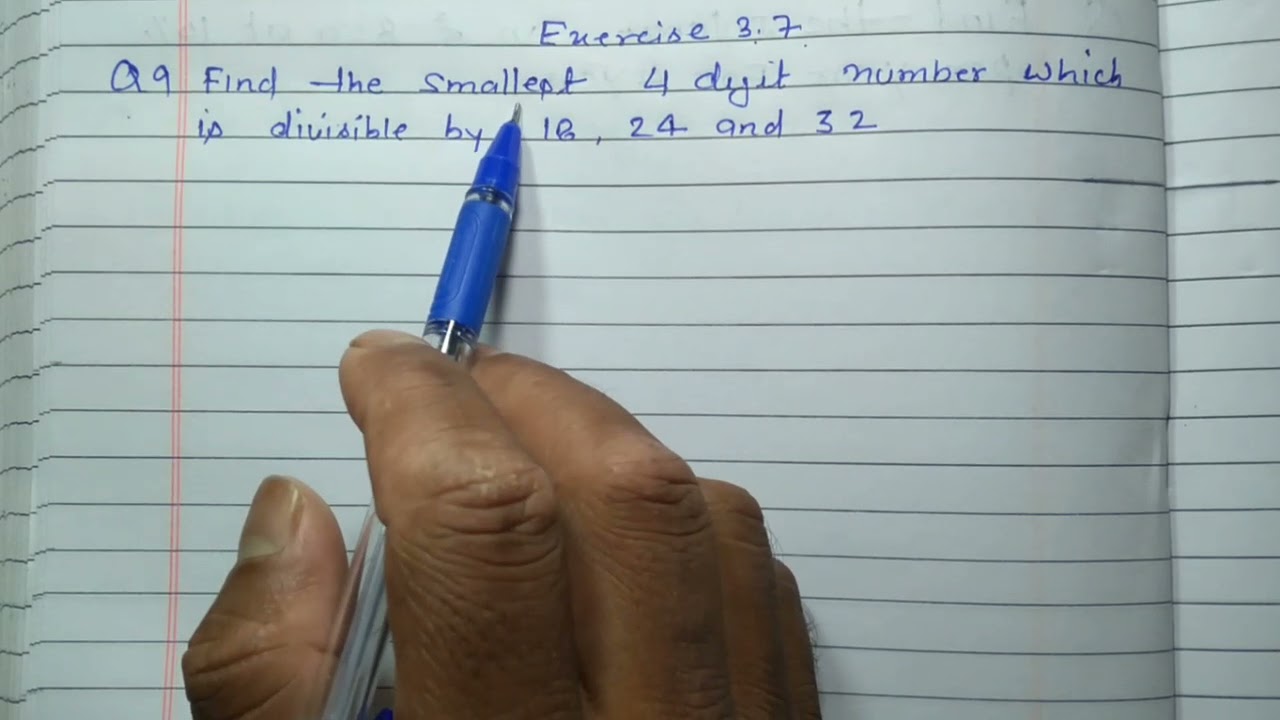 Exercise 3.7
Q9 Find the smallest 4 digit number which
is divisible by 18, 24 and 32